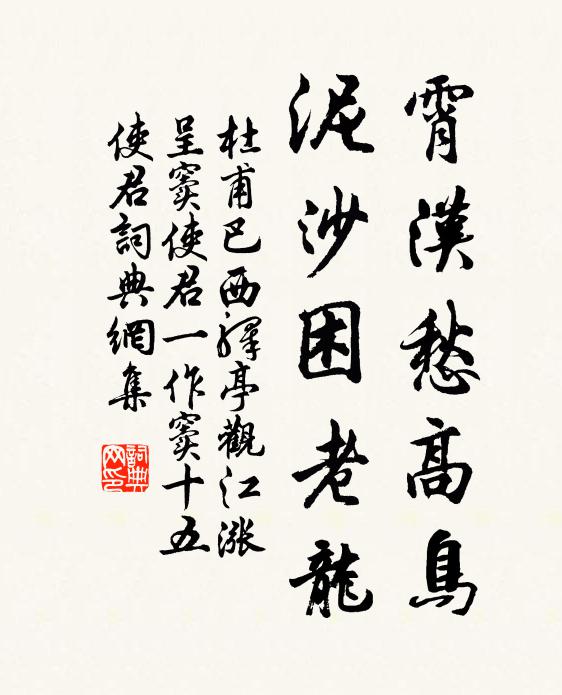 霄漢愁高鳥
泥沙困老龍
杜甫巴西驛亭觀江漲
呈竇使君一作竇十五
使君詞典網集
詞典网印